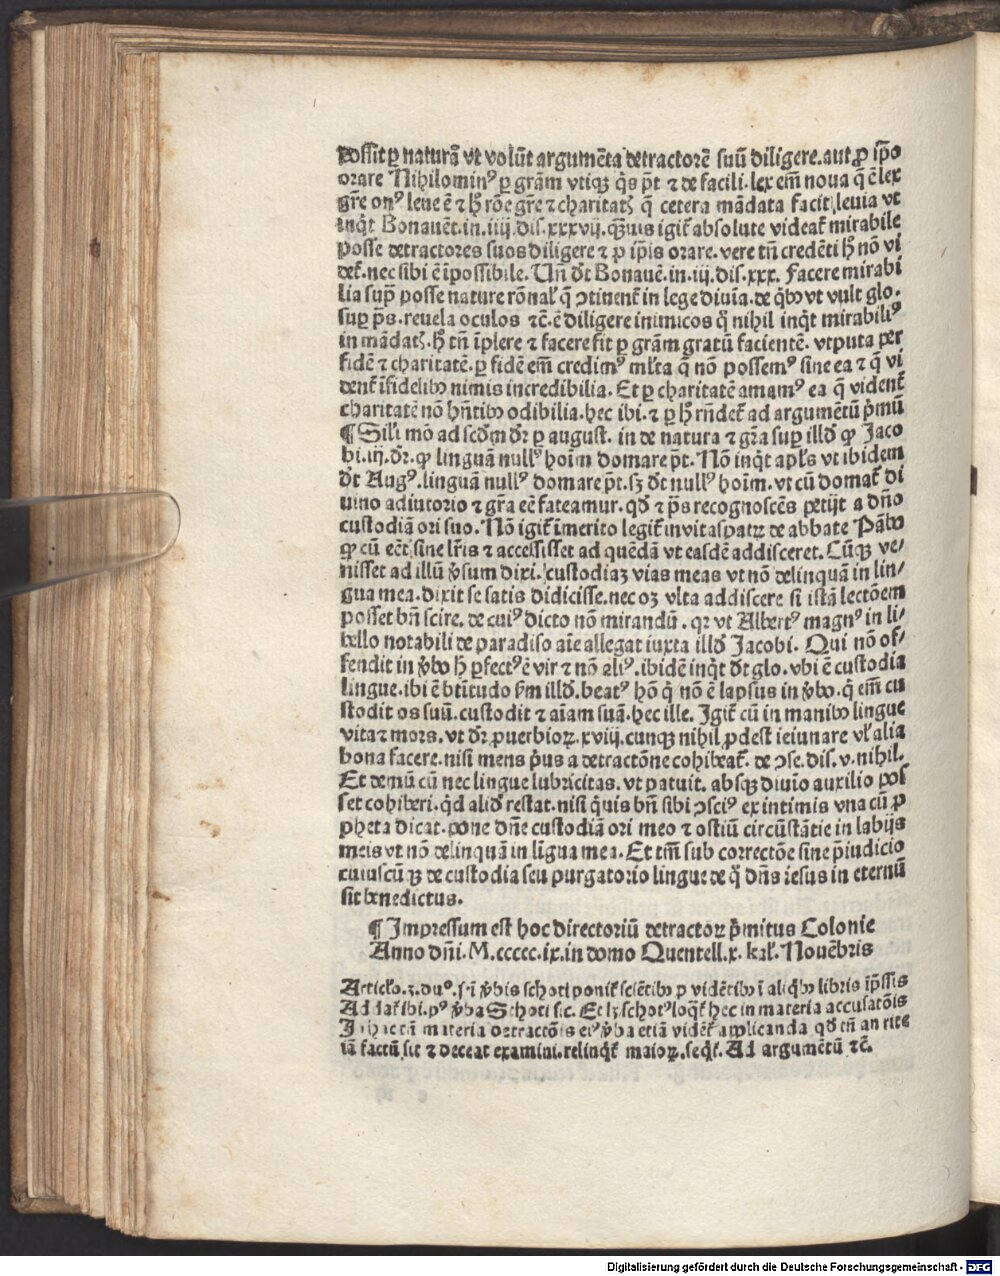 possit ꝑ naturā vt volūt argumēta detractorē suū diligere.aut ꝓ ip̄o
orare Nihilominꝰ ꝑ grām vtiqꝫ q̄s pt̄ ⁊ de facili.lex em̄ noua q̄ ē lex
gr̄e onꝰ leue ē ⁊ h̓ rōe gr̄e ⁊ charitatꝭ q̄ cetera mādata facit leuia vt
inqt̄ Bonauēt.in.iiij.dis.xxxvij.qꝫuis igit̄ absolute videat̄ mirabile
posse detractores suos diligere ⁊ ꝓ ip̄is orare.vere tn̄ credēti h̓ nō vi
det̄.nec sibi ē īpossibile.Un̄ dt̄ Bonauē.in.iij.dis.xxx. Facere mirabi
lia supꝛ posse nature rōnal̓ q̄ ↄtinent̄ in lege diuīa.de qb̄ꝰ vt vult glo.
supꝛ ps̄.reuela oculos ⁊c̄.ē diligere inimicos q̓ nihil inqt̄ mirabiliꝰ
in mādatꝭ.h̓ tn̄ īplere ⁊ facere fit ꝑ grām gratū facientē.vtputa per
fidē ⁊ charitatē.ꝑ fidē em̄ credimꝰ ml̓ta q̄ nō possemꝰ sine ea ⁊ q̄ vi
dent̄ īfidelibꝰ nimis incredibilia. Et ꝑ charitatē amamꝰ ea q̄ vident̄
charitatē nō hn̄tibꝰ odibilia.hec ibi.⁊ ꝑ h̓ rn̄det̄ ad argumētū pmū
¶ Sil̓i mō ad scd̓m dr̄ ꝑ august. in de natura ⁊ gr̄a supꝛ illd̓ ꝙ Jaco
bi.iij.dr̄.ꝙ linguā nullꝰ hoīm domare pt̄. Nō inqt̄ apl̓s vt ibidem
dt̄ Augꝰ.linguā nullꝰ domare pt̄.sꝫ dt̄ nullꝰ hoīm.vt cū domat̄ di
uino adiutorio ⁊ gr̄a eē fateamur.qd̓ ⁊ ps̄ recognoscēs petijt a dn̄o
custodiā ori suo. Nō igit̄ īmerito legit̄ in vitaspatꝝ de abbate Pābo
ꝙ cū eēt sine lr̄is ⁊ accessisset ad quēdā vt easdē addisceret. Cūqꝫ ve/
nisset ad illū v̓sum dixi.custodiaꝫ vias meas vt nō delinquā in lin/
gua mea.dixit se satis didicisse.nec oꝫ vlta addiscere si istā lectōem
posset bn̄ scire.de cuiꝰ dicto nō mirandū.qꝛ vt Albertꝰ magnꝰ in li
bello notabili de paradiso aīe allegat iuxta illd̓ Jacobi. Qui nō of/
fendit in v̓bo h̓ ꝑfectꝰ ē vir ⁊ nō aliꝰ.ibidē inqt̄ dt̄ glo.vbi ē custodia
lingue.ibi ē btītudo ẜm illd̓.beatꝰ hō q̓ nō ē lapsus in v̓bo.q̓ em̄ cu
stodit os suū.custodit ⁊ aīam suā.hec ille. Igit̄ cū in manibꝰ lingue
vita ⁊ mors.vt dr̄ ꝓuerbioꝝ.xviij.cunqꝫ nihil ꝓdest ieiunare vl̓ alia
bona facere.nisi mens pus a detractōne cohibeat̄. de ↄse.dis.v.nihil.
Et demū cū nec lingue lubricitas.vt patuit.absqꝫ diuīo auxilio pos
set cohiberi.qd̓ aliđ restat.nisi quis bn̄ sibi ↄsciꝰ ex intimis vna cū ꝓ
pheta dicat.pone dn̄e custodiā ori meo ⁊ ostiū circūstātie in labijs
meis vt nō delinquā in līgua mea.Et tm̄ sub correctōe sine p̄iudicio
cuiuscūqꝫ de custodia seu purgatorio lingue de q̓ dn̄s iesus in eternū
sit benedictus.
¶ Impressum est hoc directoriū detractoꝝ pmitus Colonie
Anno dn̄i.M.ccccc.ix.in domo Quentell.x.kal̓.Nouēbris
v̓bis schoti ponit̄ sciētibꝰ ꝓ vidētibꝰ ī aliqb̄ꝰ libris ip̄ssis
Addat̄ ibi.pꝰ v̓ba Schoti sic. Et lꝫ schotꝰ loqt̄ hec in materia accusatōis
In hac tn̄ materia detractōis eiꝰ v̓ba etiā vidēt̄ applicanda qd̓ tn̄ an rite
iā factū sit ⁊ deceat examini.relinqt̄ maioꝝ.seqt̄. Ad argumētū ⁊c̄.
Digitalisierung gefördert durch die Deutsche Forschungsgemeinschaft - DFG